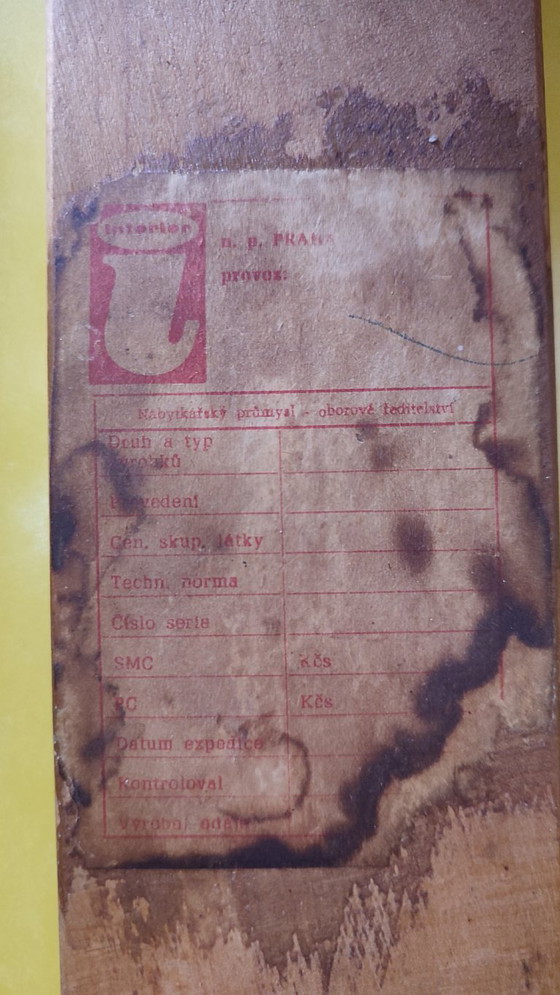 Interier
n. p. PRAHA
provoz:
Nábytkářský průmysl - oborové ředitelství
Druh a typ
výrobků
Provedení
Cen. skup. látky
Techn. norma
Číslo serie
SMC Kčs
Kčs
Datum expedice
Kontroloval
Výrobní